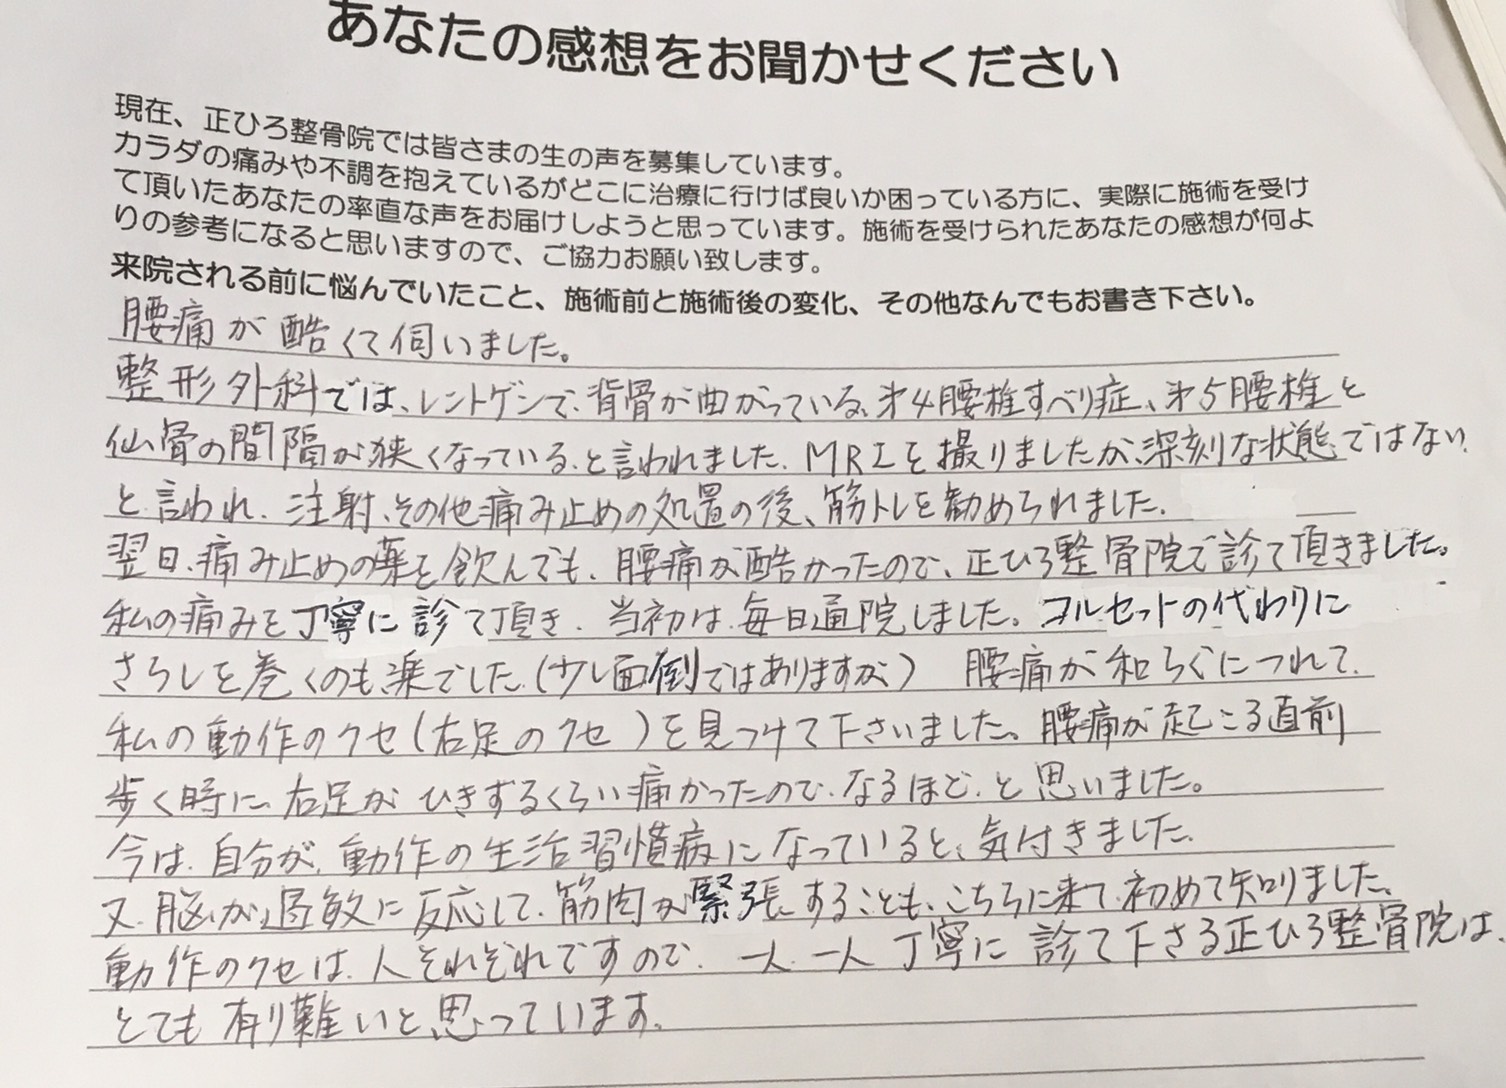 あなたの感想をお聞かせください
現在、正ひろ整骨院では皆さまの生の声を募集しています。
カラダの痛みや不調を抱えているがどこに治療に行けば良いか困っている方に、実際に施術を受け
て頂いたあなたの率直な声をお届けしようと思っています。施術を受けられたあなたの感想が何よ
りの参考になると思いますので、ご協力お願い致します。
来院される前に悩んでいたこと、施術前と施術後の変化、その他なんでもお書き下さい。
腰痛が酷くて伺いました。
整形外科では、レントゲンで、背骨が曲がっている、第4腰椎すべり症、第5腰椎と
仙骨の間隔が狭くなっている、と言われました。MRIを撮りましたが、深刻な状態ではない、
と言われ、注射、その他痛み止めの処置の後、筋トレを勧められました。
翌日、痛み止めの薬を飲んでも、腰痛が酷かったので、正ひろ整骨院で診て頂きました。
私の痛みを丁寧に診て頂き、当初は、毎日通院しました。コルセットの代わりに
さらしを巻くのも楽でした。(少し面倒ではありますが)　腰痛が和らぐにつれて、
私の動作のクセ(右足のクセ)を見つけて下さいました。腰痛が起こる直前
歩く時に、右足がひきずるくらい痛かったので、なるほど、と思いました。
今は、自分が、動作の生活習慣病になっていると、気付きました。
又、脳が過敏に反応して、筋肉が緊張することも、こちらに来て、初めて知りました。
動作のクセは、人それぞれですので、一人、一人丁寧に診て下さる正ひろ整骨院は、
とても有り難いと、思っています。